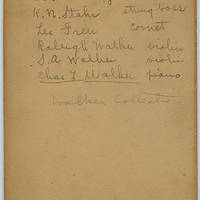 K. N. Stahr string bass
Les Treu cornet
Raleigh Walker violin
S. A. Walker violin
Chas L Walker piano
Walker Collection